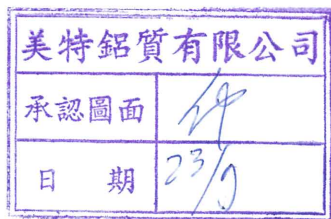 美特鋁質有限公司
承認圖面
日 期